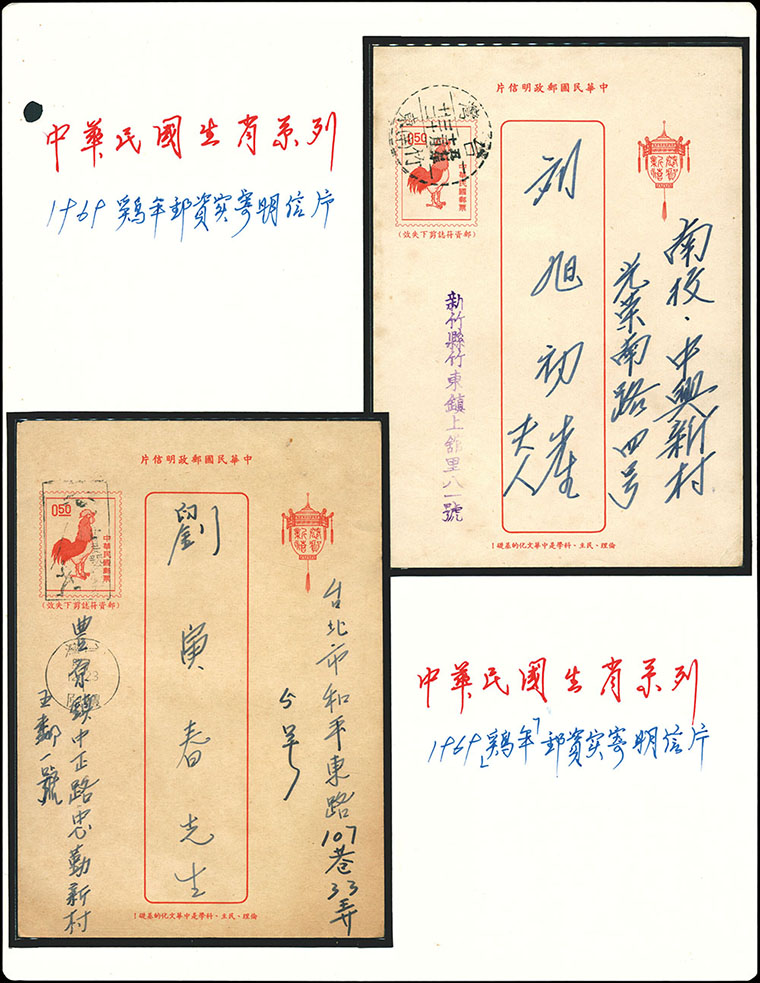 中華民國生肖系列
1969 鷄年郵資实寄明信片
片信明政郵國民華中
0.50
中華民國郵票
(郵資符誌剪下失效)
恭賀新禧
南投·中興新村
光榮南路四号
刘旭初先生
夫人
新竹縣竹東鎮上舘里八一號
倫理、民主、科學是中華文化的基礎!
片信明政郵國民華中
0.50
中華民國郵票
(郵資符誌剪下失效)
恭賀新禧
台北市和平東路107巷33弄
5号
劉寅春先生
豊原鎮中正路忠勤新村
五鄰一號
倫理、民主、科學是中華文化的基礎!
中華民國生肖系列
1969「鷄年」郵資实寄明信片